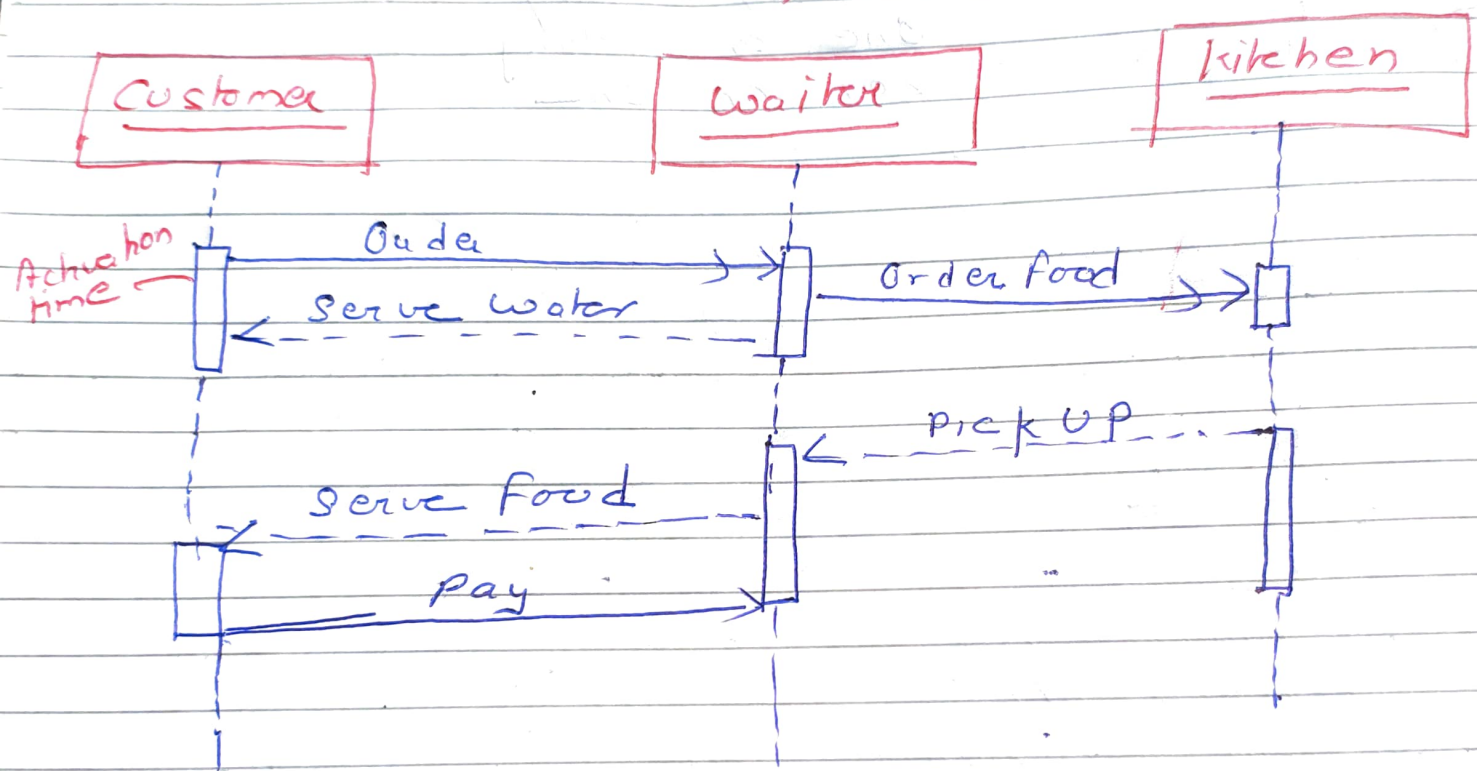 Customer
Waiter
Kitchen
Activation
time
Order
Order food
Serve water
Pick UP
Serve food
Pay